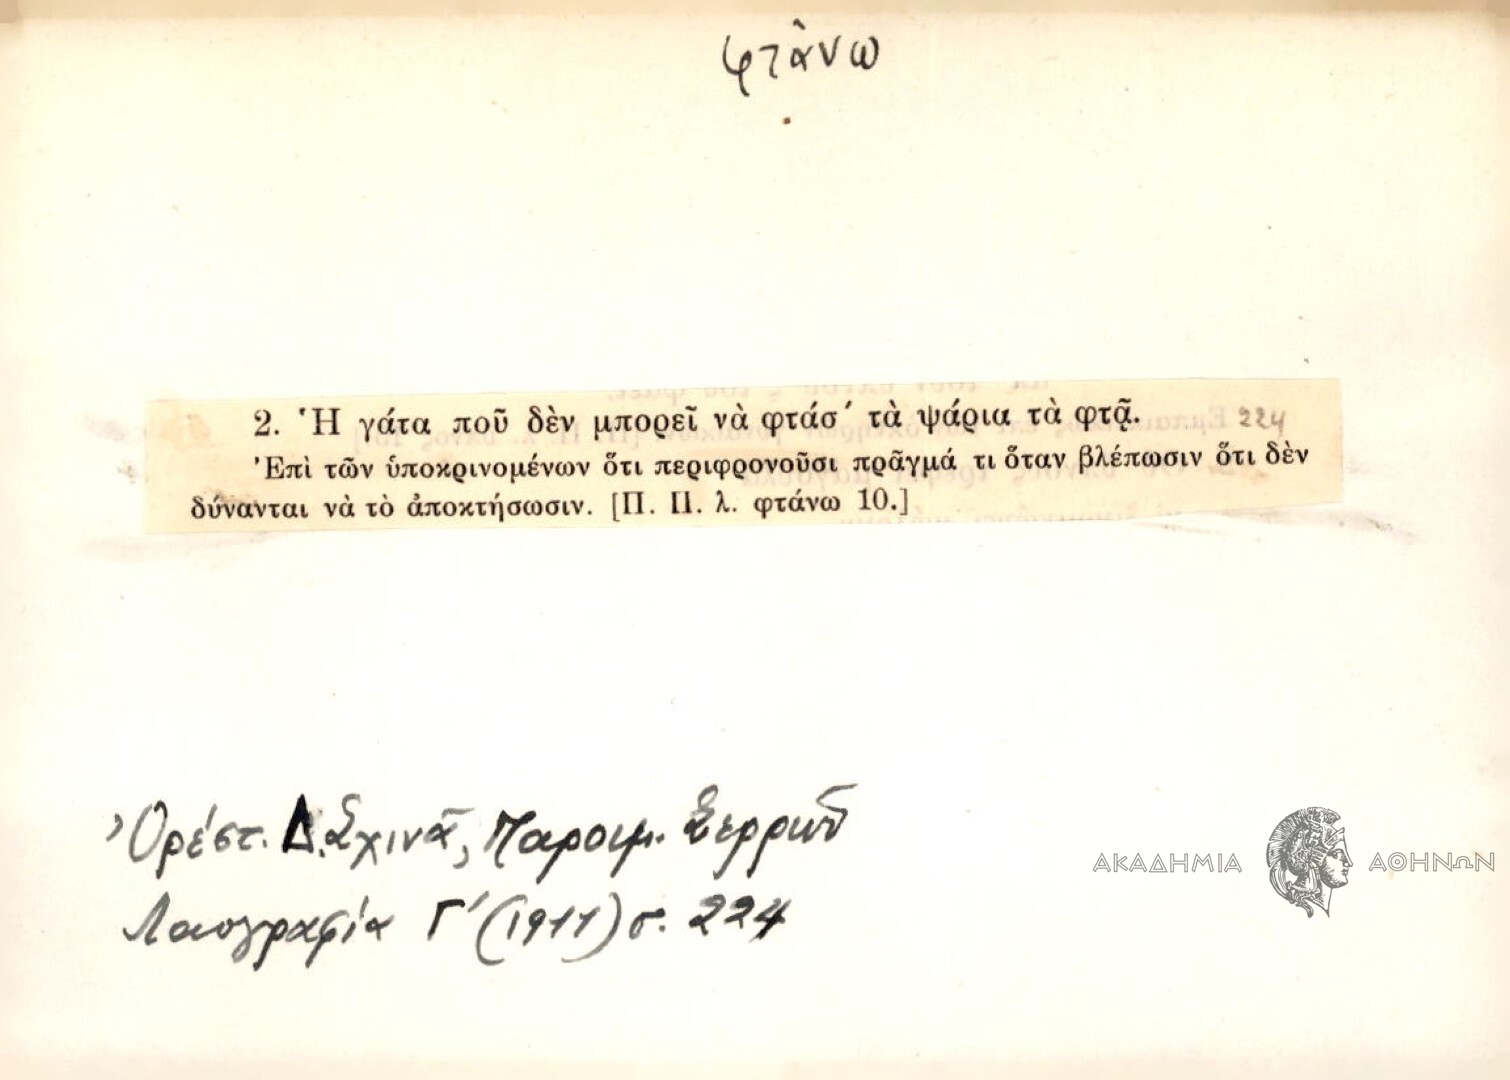 φτάνω
2. Ἡ γάτα ποῦ δὲν μπορεῖ νὰ φτάσ᾿ τὰ ψάρια τὰ φτᾷ. 224
Ἐπὶ τῶν ὑποκρινομένων ὅτι περιφρονοῦσι πρᾶγμά τι ὅταν βλέπωσιν ὅτι δὲν
δύνανται νὰ τὸ ἀποκτήσωσιν. [Π. Π. λ. φτάνω 10.]
Ὀρέστ. Δ. Σχινᾶ, Παροιμ. Σερρῶν
Λαογραφία Γ΄ (1911) σ. 224
ΑΚΑΔΗΜΙΑ ΑΘΗΝΩΝ